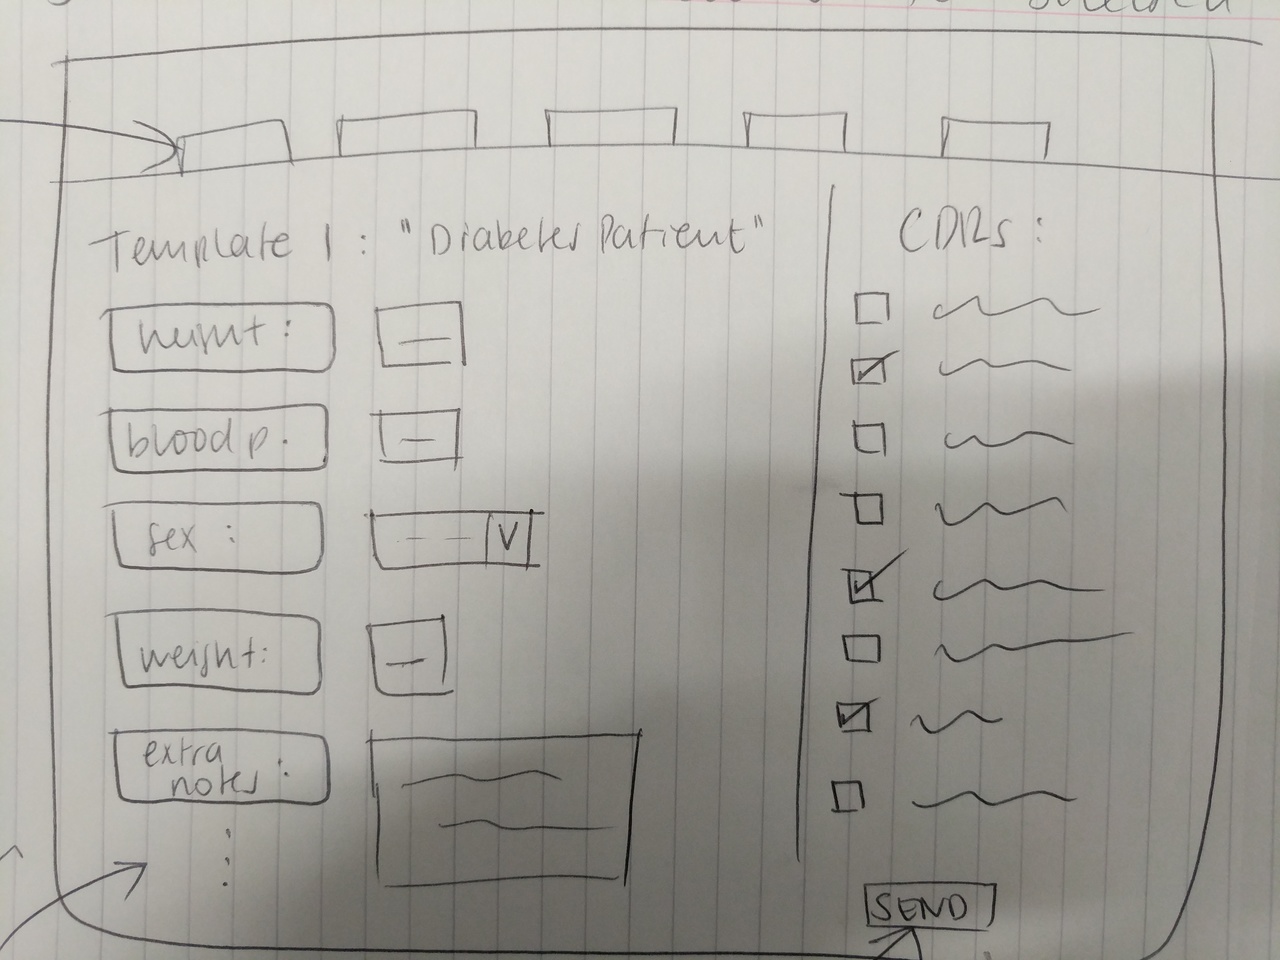 Template 1 : "Diabetes Patient"
height :
blood p.
sex :
V
weight:
extra
notes :
CDRs :
SEND